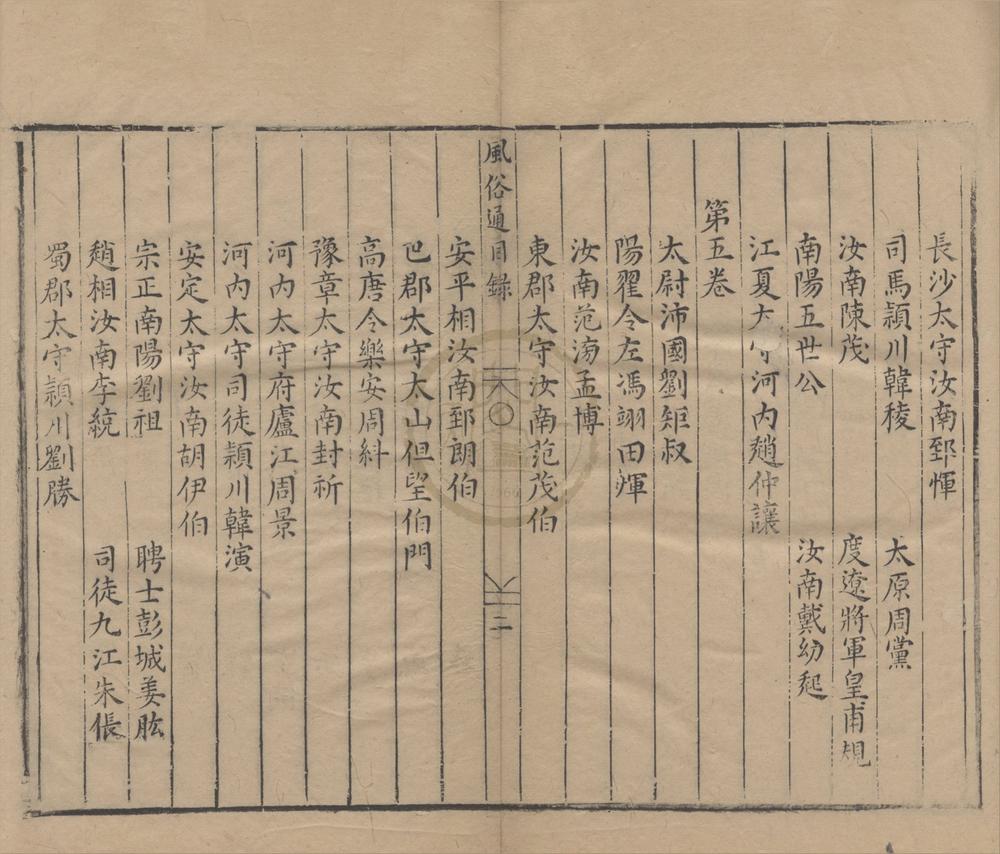 長沙太守汝南郅惲
司馬潁川韓稜　太原周黨
汝南陳茂　度遼將軍皇甫規
南陽五世公　汝南戴幼起
江夏太守河內趙仲讓
第五卷
太尉沛國劉矩叔
陽翟令左馮翊田煇
汝南范滂孟博
東郡太守汝南范茂伯
風俗通目錄　二
安平相汝南郅朗伯
巴郡太守太山但望伯門
高唐令樂安周糾
豫章太守汝南封祈
河內太守府廬江周景
河內太守司徒潁川韓演
安定太守汝南胡伊伯
宗正南陽劉祖　聘士彭城姜肱
趙相汝南李統　司徒九江朱倀
蜀郡太守潁川劉勝